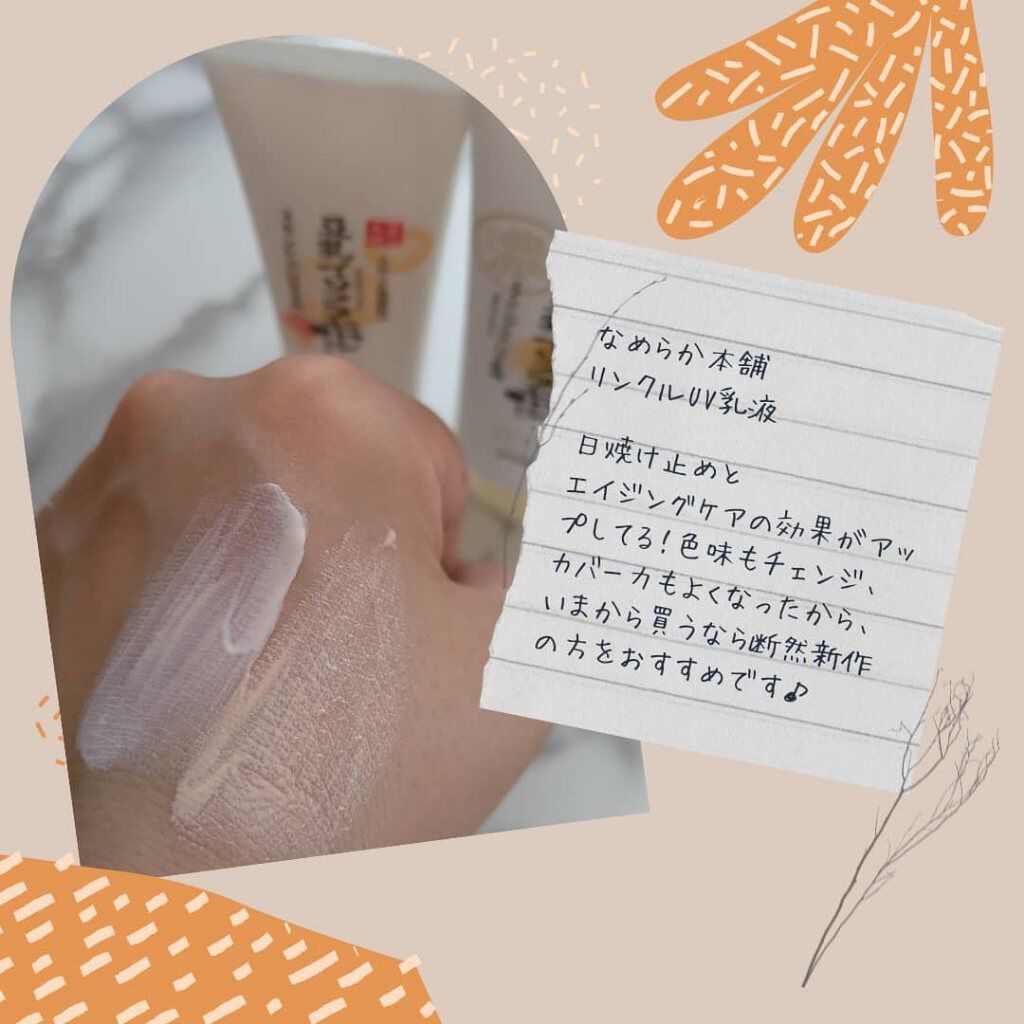 なめらか本舗
リンクルUV乳液
日焼け止めと
エイジングケアの効果がアッ
プしてる!色味もチェンジ、
カバー力もよくなったから、
いまから買うなら断然新作
の方をおすすめです♪